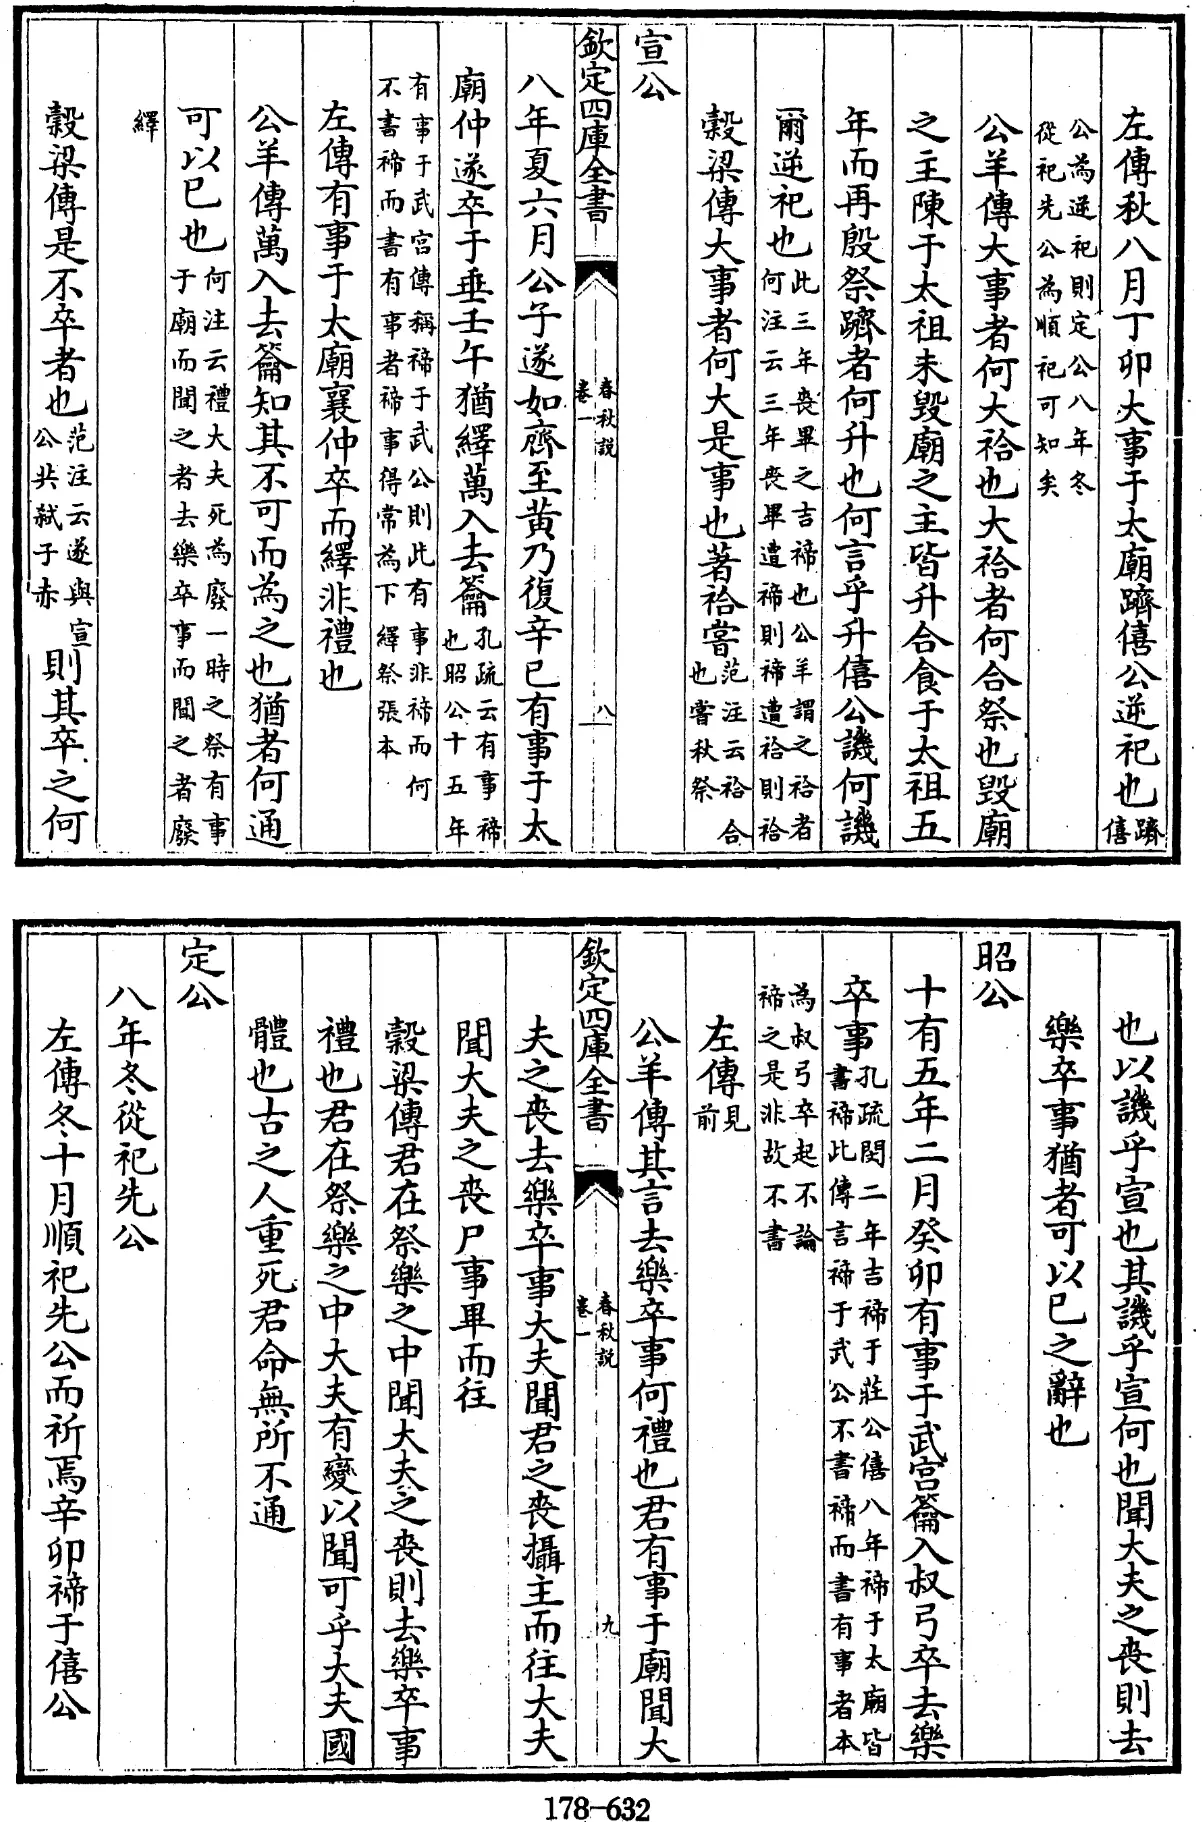 左傳秋八月丁卯大事于太廟躋僖公逆祀也躋僖
公為逆祀則定公八年冬
從祀先公為順祀可知矣
公羊傳大事者何大祫也大祫者何合祭也毀廟
之主陳于太祖未毀廟之主皆升合食于太祖五
年而再殷祭躋者何升也何言乎升僖公譏何譏
爾逆祀也此三年喪畢之吉禘也公羊謂之祫者
何注云三年喪畢遭禘則禘遭祫則祫
穀梁傳大事者何大是事也著祫嘗范注云祫合
也嘗秋祭
宣公
欽定四庫全書
春秋説
卷一
八
八年夏六月公子遂如齊至黄乃復辛巳有事于太
廟仲遂卒于垂壬午猶繹萬入去籥孔疏云有事禘
也昭公十五年
有事于武宫傳稱禘于武公則此有事非禘而何
不書禘而書有事者禘事得常為下繹祭張本
左傳有事于太廟襄仲卒而繹非禮也
公羊傳萬入去籥知其不可而為之也猶者何通
可以已也何注云禮大夫死為廢一時之祭有事
于廟而聞之者去樂卒事而聞之者廢
繹
穀梁傳是不卒者也范注云遂與宣
公共弑子赤則其卒之何
也以譏乎宣也其譏乎宣何也聞大夫之喪則去
樂卒事猶者可以已之辭也
昭公
十有五年二月癸卯有事于武宫籥入叔弓卒去樂
卒事孔疏閔二年吉禘于莊公僖八年禘于太廟皆
書禘此傳言禘于武公不書禘而書有事者本
為叔弓卒起不論
禘之是非故不書
左傳見
前
公羊傳其言去樂卒事何禮也君有事于廟聞大
欽定四庫全書
春秋説
卷一
九
夫之喪去樂卒事大夫聞君之喪攝主而往大夫
聞大夫之喪尸事畢而往
穀梁傳君在祭樂之中聞大夫之喪則去樂卒事
禮也君在祭樂之中大夫有變以聞可乎大夫國
體也古之人重死君命無所不通
定公
八年冬從祀先公
左傳冬十月順祀先公而祈焉辛卯禘于僖公
178-632